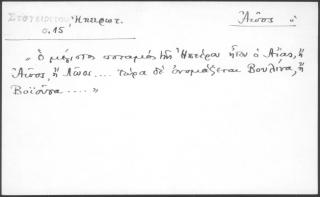 ΣΤΟΥΠΙΤΟΥ Ἠπειρωτ. Ἄωος, ὁ
σ. 15
" Ὁ μέγιστος ποταμὸς τῆς Ἠπείρου ἦτον ὁ Αἴας, ἢ
Ἄωος, ἢ Λῶος.... τώρα δὲ ὀνομάζεται Βουλίνα, ἢ
Βοϊοῦσα .... "